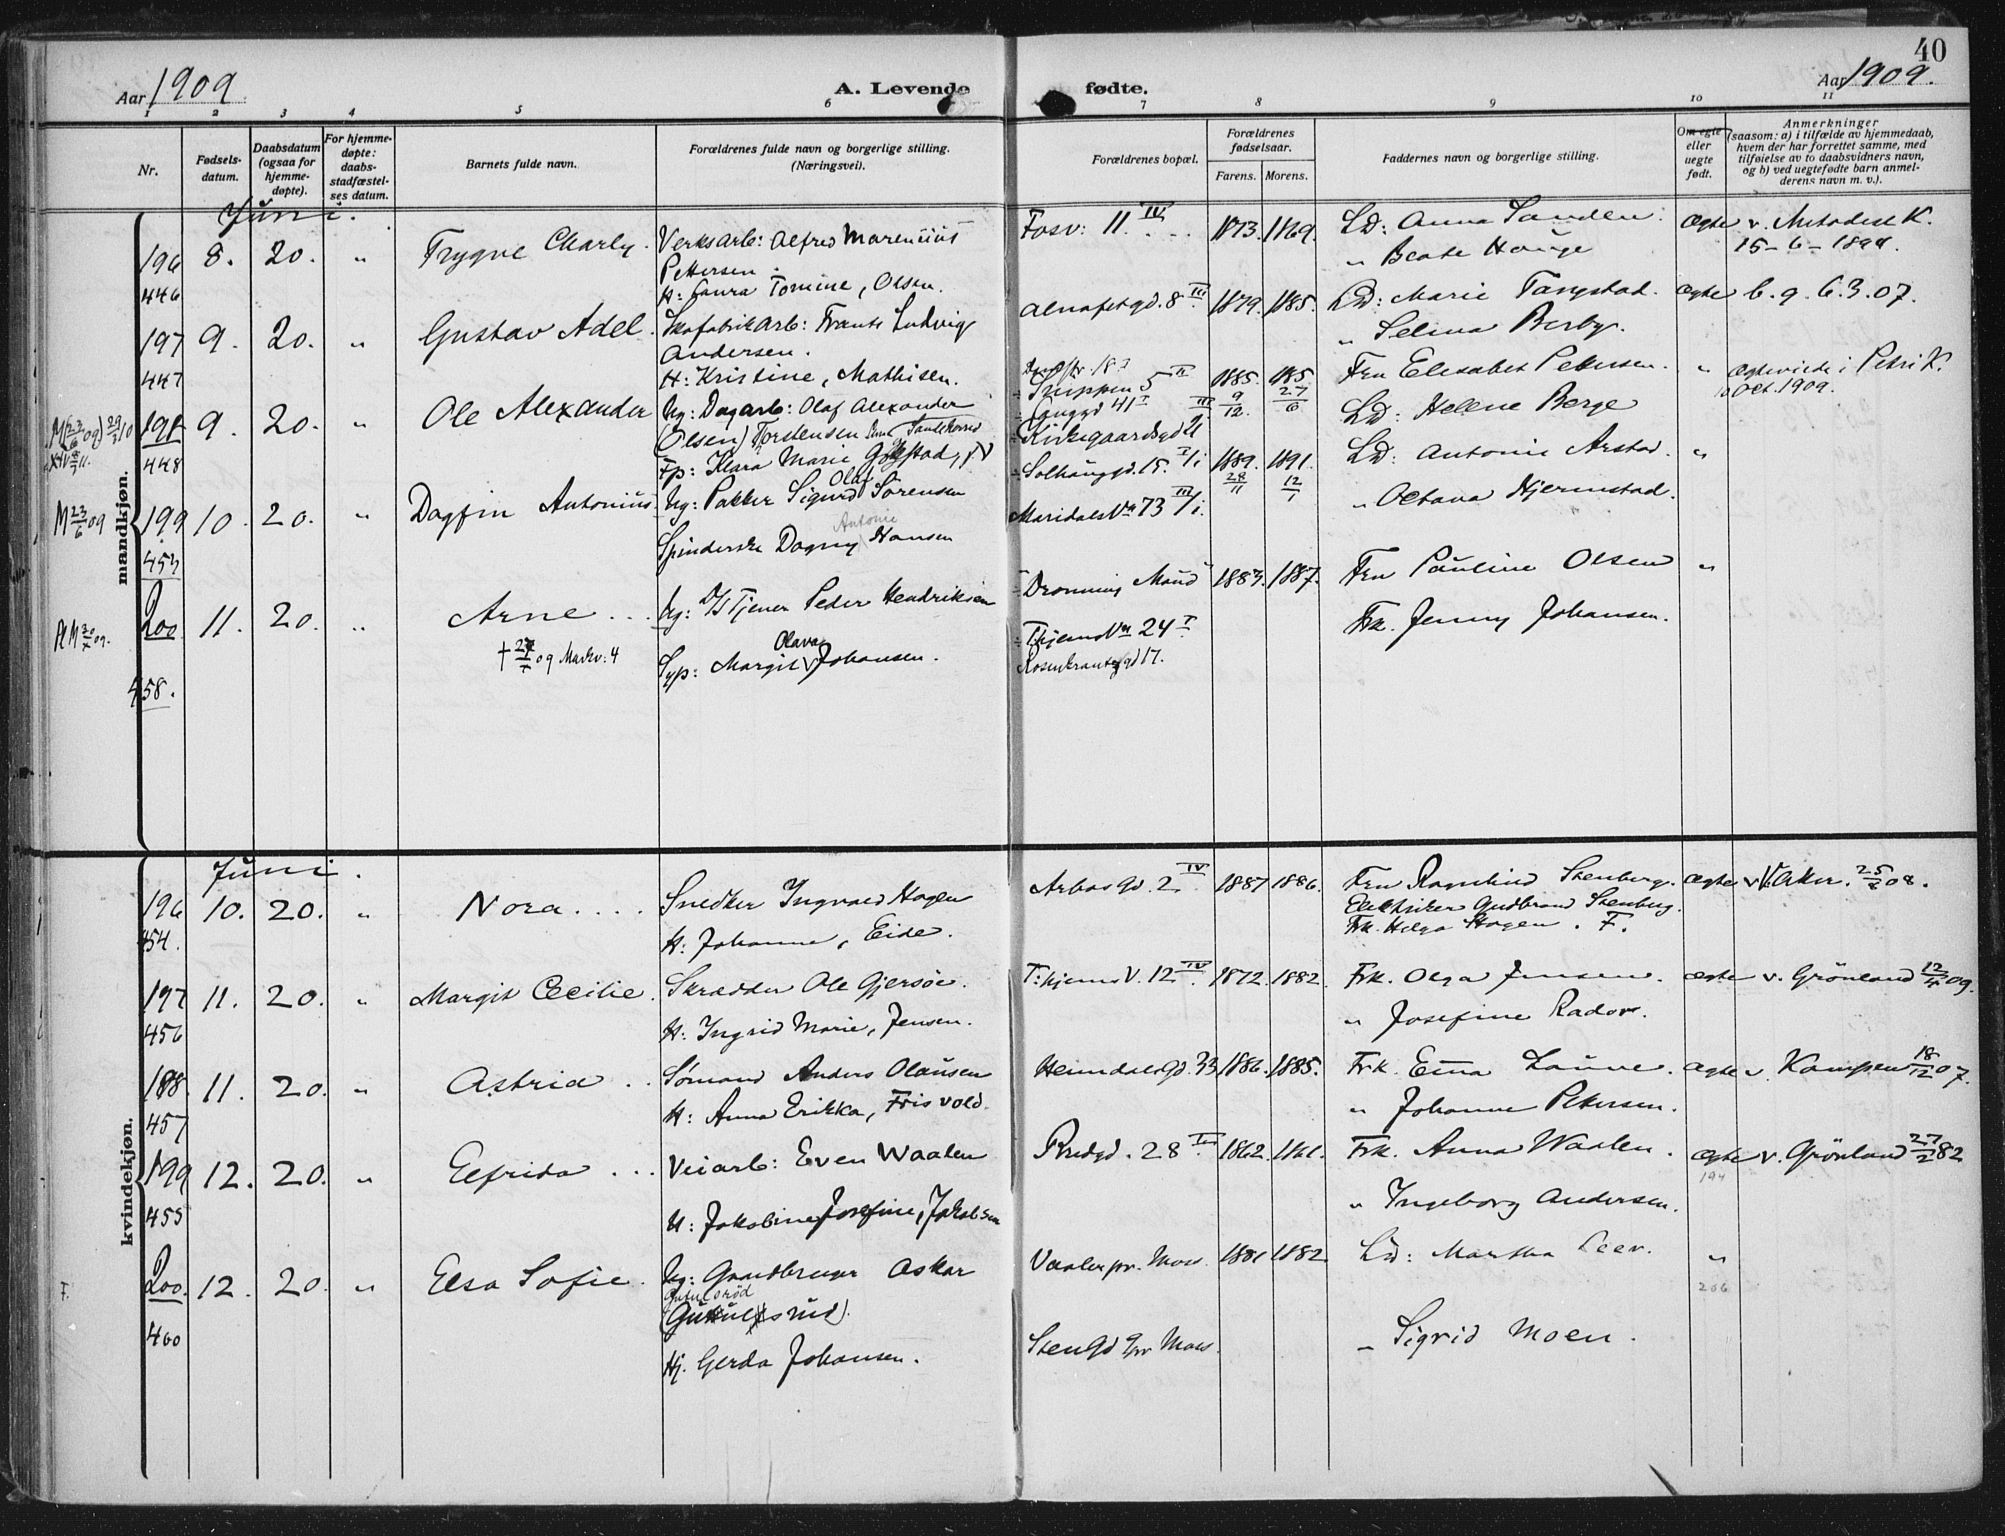 40
Aar 1909
A. Levende fødte.
Aar 1909.
1 2 3 4 5 6 7 8 9 10 11
Nr.
Fødsels-
datum.
Daabsdatum
(ogsaa for
hjemme-
døpte).
For hjemme-
døpte:
daabs-
stadfæstel-
ses datum.
Barnets fulde navn.
Forældrenes fulde navn og borgerlige stilling.
(Næringsvei).
Forældrenes bopæl.
Forældrenes
fødselsaar.
Farens. Morens.
Faddernes navn og borgerlige stilling.
Om egte
eller
uegte
født.
Anmerkninger
(saasom: a) i tilfælde av hjemmedaab,
hvem der har forrettet samme, med
tilføielse av to daabsvidners navn,
og b) ved uegtefødte barn anmel-
derens navn m. v.).
mandkjøn.
Juni.
196 8. 20. " Trygve Charly. Verksarb: Alfred Marenius
Pettersen.
H: Laura Tomine, Olsen.
446
Fosv: 11 IV 1873. 1869. Ld: Anna Sanden.
" Beate Hauge
Ægte v.
15-6-1894.
197 9. 20. " Gustav Adel. Skofabrikarb: Frants Ludvig
Andersen.
H: Kristine, Mathisen.
447
Almafetgd. 8 III 1879. 1885. Ld: Marie Tangstad.
" Selma Berby.
Ægte b. g. 6.3.07.
198 9. 20. " Ole Alexander Ug: Dagarb: Olaf Alexander
(Olsen) Torstensen
Fp: Klara Marie
448
Snippen 5 II
Langgd 41 I
Kirkegaardsgd
1885. 9/12. 185 27/6
Fru Elisabet Pettersen.
Ld: Helene Berge
" Ægteviede i Petri K.
Oct. 1909.
M 23/6 09
199 10. 20. " Dagfin Antonius. Ug: Pakker Sigurd Olaf Sørensen
Spinderske Dagny Antonie Hansen
453
Solhauggd. 15. I/i
Maridalsvn 73 III/i.
1889. 28/11 1891. 12/1
Ld: Antonie Arstad.
" Octava Hjermstad.
"
200 11. 20. " Arne . . . Ug: D/S Tjener Peder Hendriksen
Syp: Margit Olava Johansen.
† 27/7 09 Markv: 4
458.
"Dronning Maud"
Thjemsvn 24 I
Rosenkrantzgd 17.
1883. 1887.
Fru Pauline Olsen
Frk. Jenny Johansen.
"
kvindekjøn.
Juni.
196 10. 20. " Nora . . . . Snedker Ingvald Hagen
H: Johanne, Eide.
454.
Arbosgd. 2 IV 1887 1886. Fru Ragnhild Stenberg.
Elektriker Gudbrand Stenberg.
Frk. Helga Hagen. F.
Ægte v V. Aker. 25/8 08.
197 11. 20. " Margit Cecilie. Skrædder Ole Gjersøe.
H: Ingrid Marie, Jensen.
456
T:hjems V. 12 IV 1872. 1882. Frk. Olga Jensen.
" Josefine Radov.
Ægte v. Grönland 12/4 09.
198 11. 20. " Astrid . . Sømand Anders Olausen
H: Anna Erikka, Frisvold.
457
Heimdalsgd. 33 1886. 1885. Frk. Ema Laure.
" Johanne Petersen.
Ægte v. Kampen 18/12 07.
199 12. 20. " Elfrida . . . Veiarb: Even Waalen
H: Jakobine Josefine, Jakobsen
455
Rudgd. 28 III 1862. 1861. Frk. Anna Waalen.
" Ingeborg Andersen.
Ægte v. Grönland 27/2 82
194
F.
200. 12. 20. " Elsa Sofie. Ug: Gaardbruger Oskar
Gutulsrød
(Gutulfsrud).
Hj. Gerda Johansen.
460
Vaaler pr. Moss. 1881 1882 Ld: Martha Leer.
Stengd pr Moss.
" Sigrid Moen.
"
206